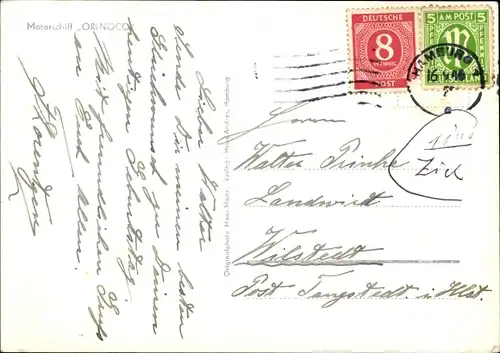 Motorschiff „ORINOCO“
Lieber Walter
Sende Dir meinen besten
Glückwunsch zu Deinem
heutigen Geburtstag.
Mit freundlichen Gruß
an Euch Allen.
Originalphoto Hans Hartz Verlag: Hans Andres, Hamburg
DEUTSCHE
8
PFENNIG
POST
5 AM POST 5
M
PFENNIG
HAMBURG
Herrn
Walter Prinke
Landwirt
Wilstedt
Post Tangstedt i. Hlst.
Zick